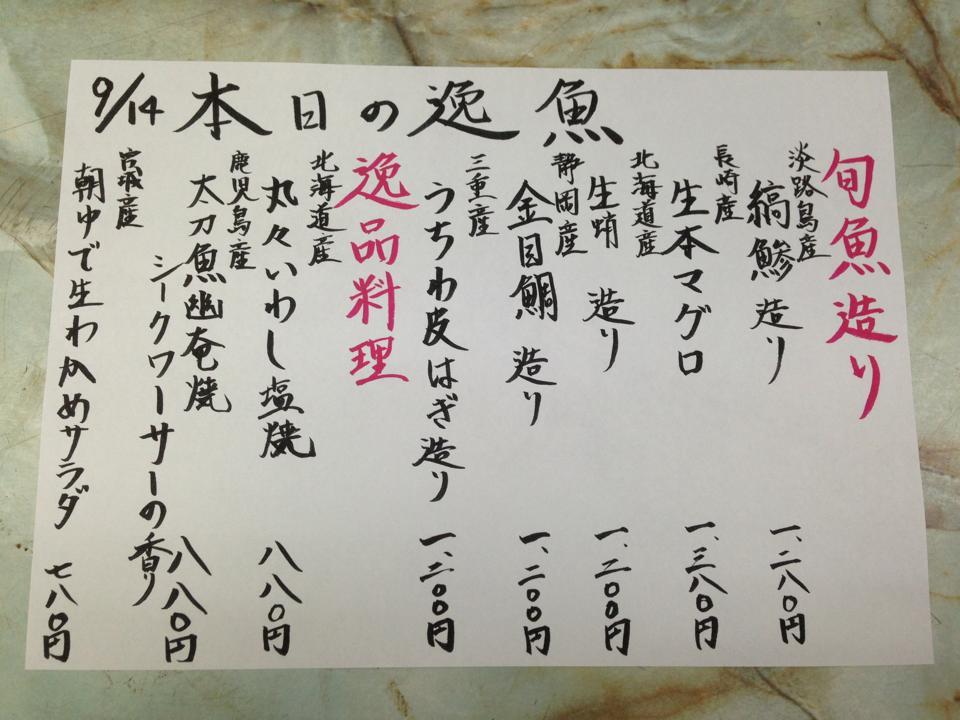 9/14 本日の逸魚
旬魚造り
淡路島産
縞鯵 造り 一、二八〇円
長崎産
生本マグロ 一、三八〇円
北海道産
生蛸 造り 一、二〇〇円
静岡産
金目鯛 造り 一、二〇〇円
三重産
うちわ皮はぎ造り 一、二〇〇円
逸品料理
北海道産
丸々いわし塩焼 八八〇円
鹿児島産
太刀魚幽奄焼 八八〇円
シークワーサーの香り
宮城産
朝ゆで生わかめサラダ 七八〇円